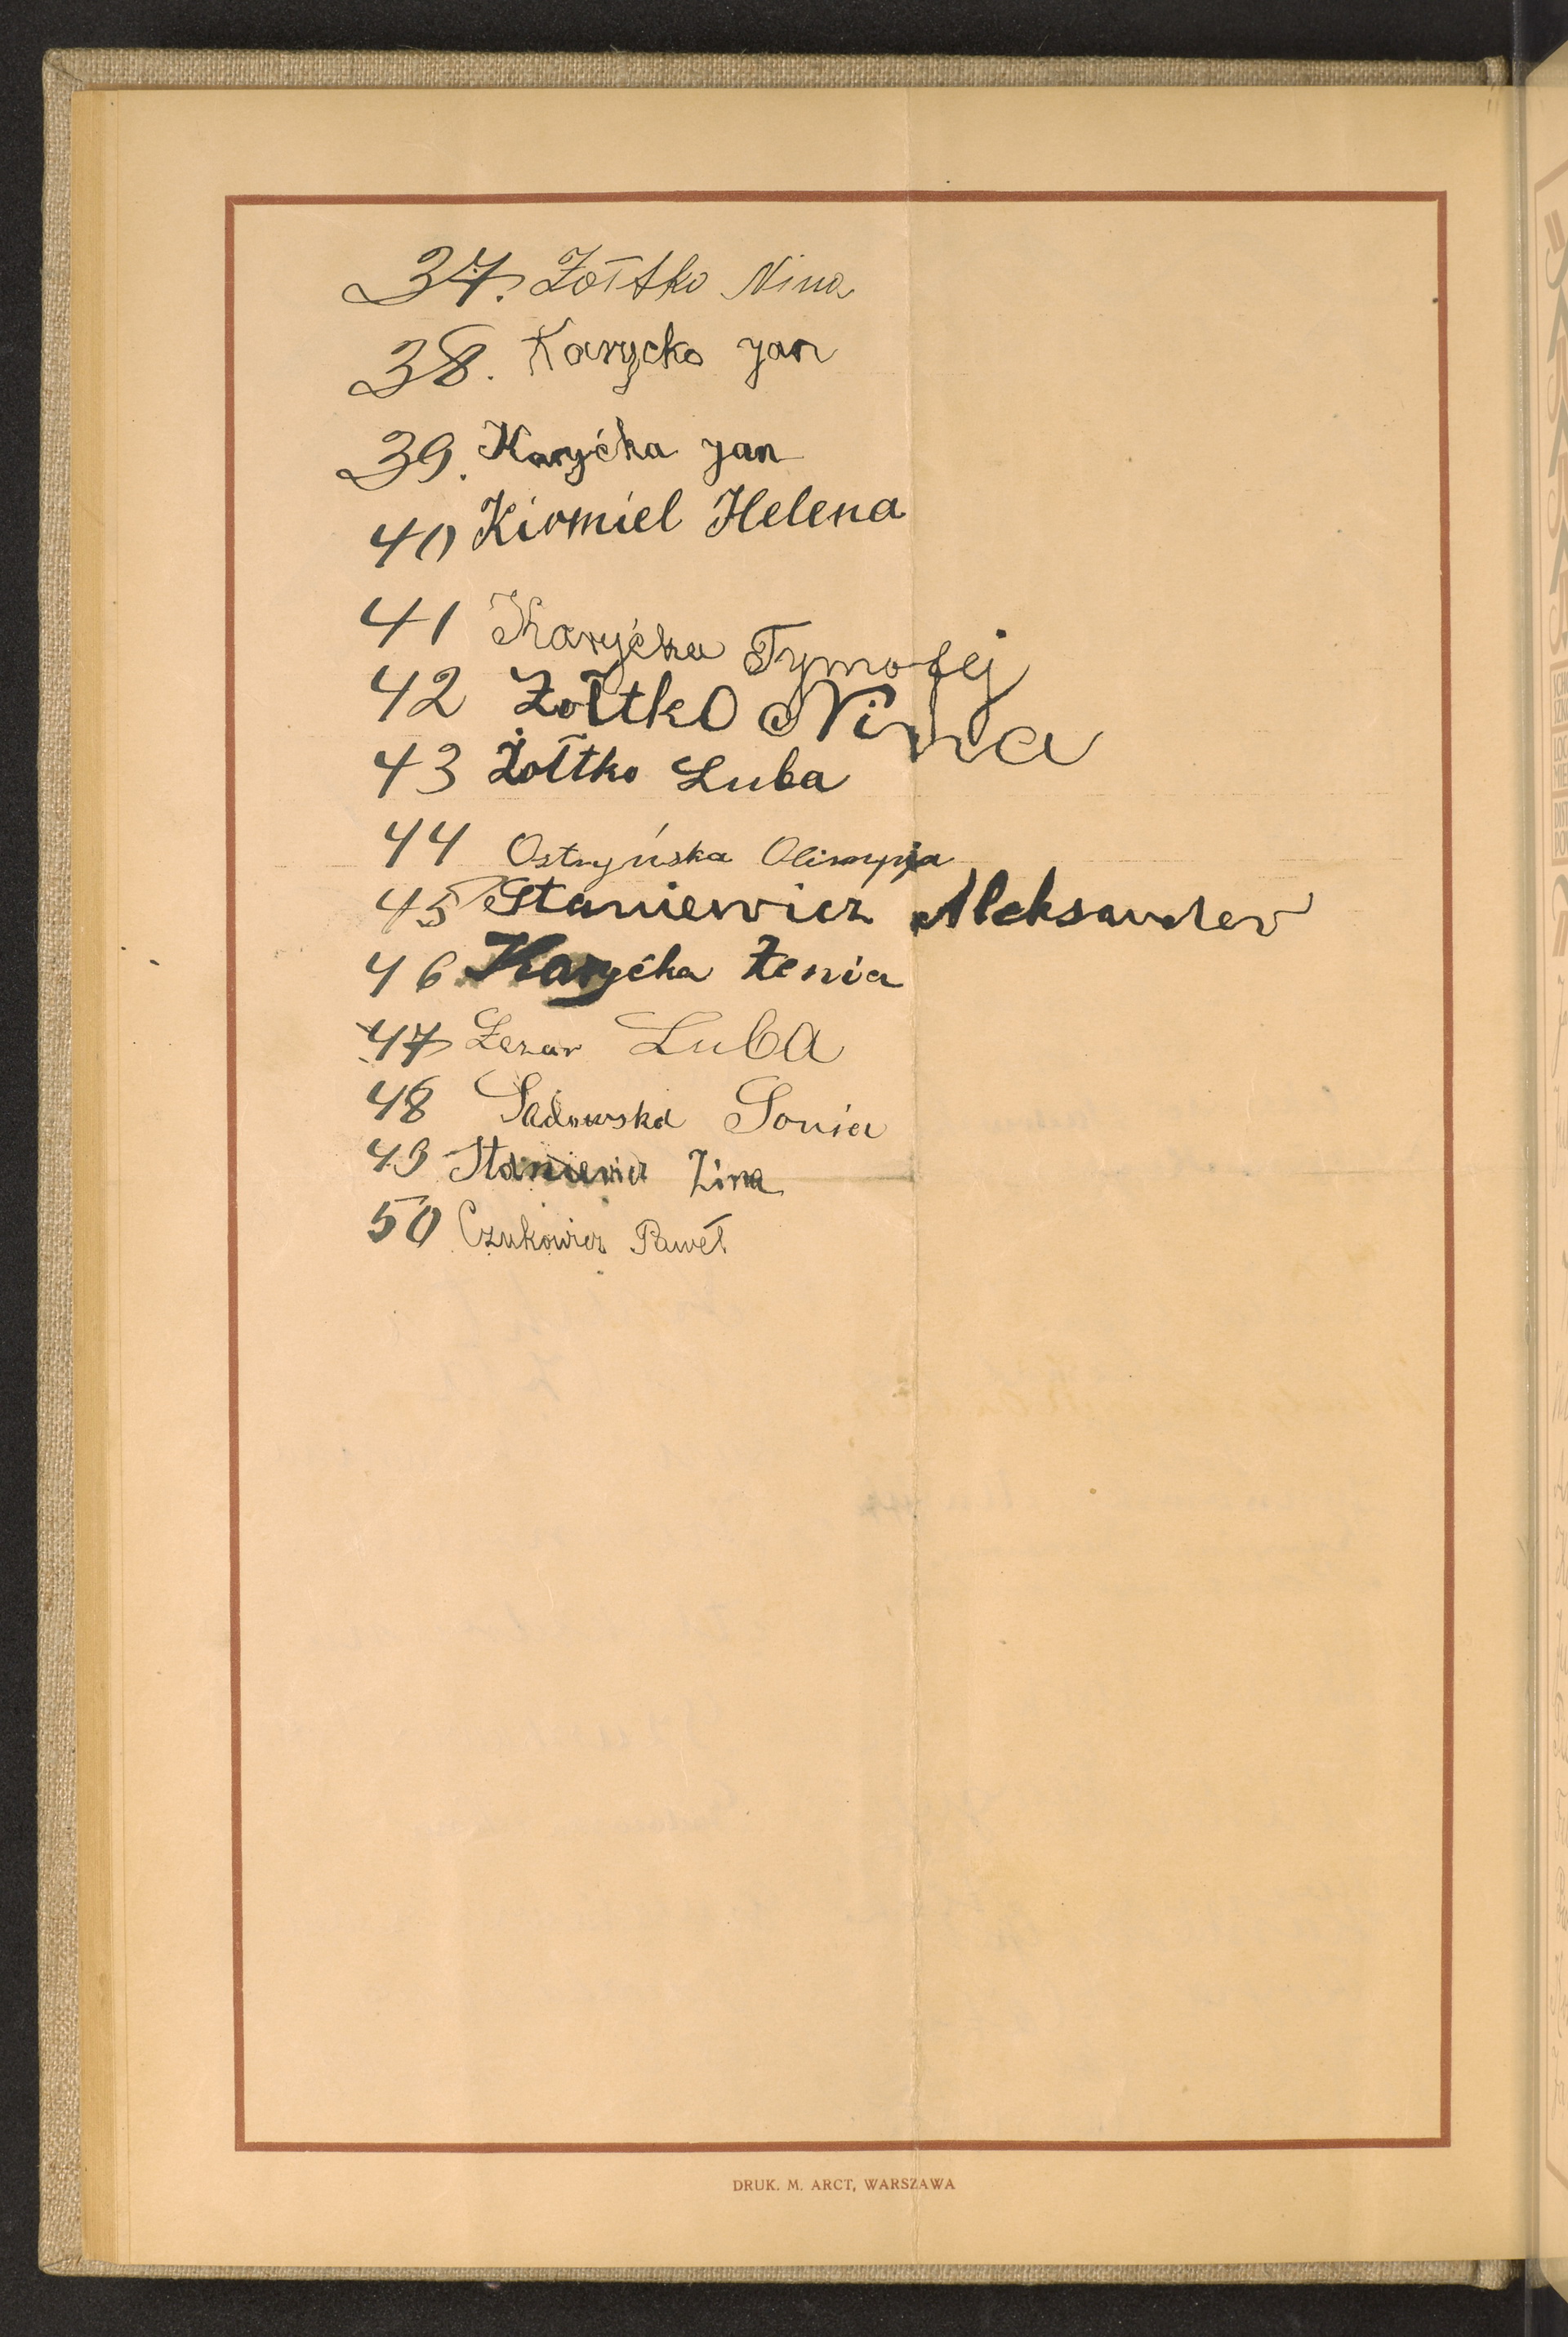 37. Żołtko Nina
38. Karycko Jan
39. Karyćka Jan
40 Kirmiel Helena
41 Karyćka Tymofej
42 Żołtko Nina
43 Żołtko Luba
44 Ostryńska Olimpja
45 Staniewicz Aleksander
46 Karyćka Żenia
47 Lezar Luba
48 Sadowska Sonia
49 Staniewicz Zina
50 Czukowicz Paweł
DRUK. M. ARCT, WARSZAWA